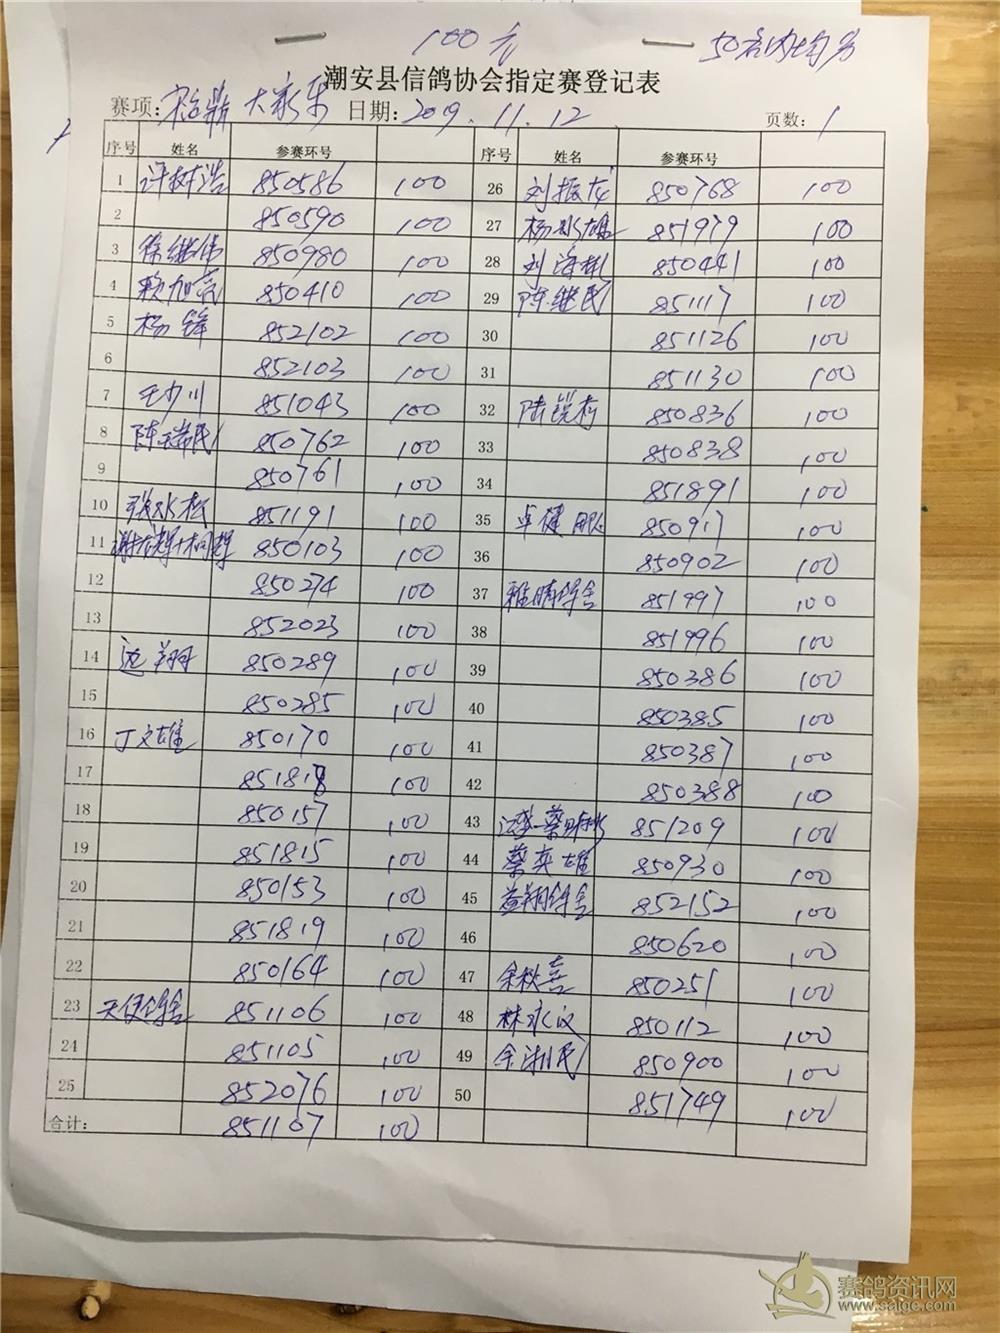 100元
50名内均分
潮安县信鸽协会指定赛登记表
赛项: 大家乐 日期: 2019.11.12 页数: 1
序号 姓名 参赛环号 序号 姓名 参赛环号
1 许树浩 850586 100 26 刘振龙 850768 100
2 850590 100 27 杨水雄 851979 100
3 徐继伟 850980 100 28 刘海彬 850441 100
4 赖旭亮 850410 100 29 陈继民 851117 100
5 杨锋 852102 100 30 851126 100
6 852103 100 31 851130 100
7 王少川 851043 100 32 陆锐有 850836 100
8 陈瑞民 850762 100 33 850838 100
9 850761 100 34 851891 100
10 张水松 851191 100 35 卓健 850917 100
11 850103 100 36 850902 100
12 850274 100 37 雅晴鸽舍 851997 100
13 852023 100 38 851996 100
14 远翔 850289 100 39 850386 100
15 850285 100 40 850385 100
16 丁文雄 850170 100 41 850387 100
17 851818 100 42 850388 100
18 850157 100 43 851209 100
19 851815 100 44 蔡奕雄 850930 100
20 850153 100 45 益翔鸽舍 852152 100
21 851819 100 46 850620 100
22 850164 100 47 余秋喜 850251 100
23 天使鸽舍 851106 100 48 林永汉 850112 100
24 851105 100 49 余湘民 850900 100
25 852076 100 50 851749 100
合计: 851107 100
赛鸽资讯网
www.saige.com